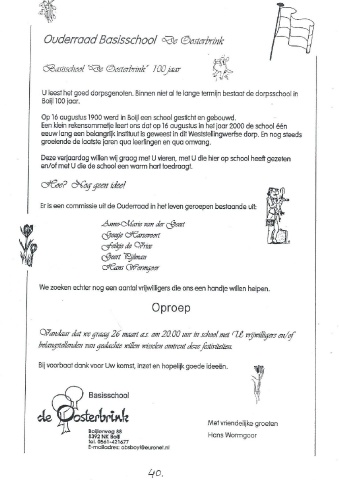 Ouderraad Basisschool De Oosterbrink
Basisschool "De Oosterbrink" 100 jaar
U leest het goed dorpsgenoten. Binnen niet al te lange termijn bestaat de dorpsschool in
Boijl 100 jaar.
Op 16 augustus 1900 werd in Boijl een school gesticht en gebouwd.
Een klein rekensommetje leert ons dat op 16 augustus in het jaar 2000 de school één
eeuw lang een belangrijk instituut is geweest in dit Weststellingwerfse dorp. En nog steeds
groeiende de laatste jaren qua leerlingen en qua omvang.
Deze verjaardag willen wij graag met U vieren, met U die hier op school heeft gezeten
en/of met U die de school een warm hart toedraagt.
Hoe? Nog geen idee!
Er is een commissie uit de Ouderraad in het leven geroepen bestaande uit:
Anne-Marie van der Goot
Geesje Harsevoort
Feikje de Vries
Geert Pijlman
Hans Wormgoor
We zoeken echter nog een aantal vrijwilligers die ons een handje willen helpen.
Oproep
Vandaar dat we graag 26 maart a.s. om 20.00 uur in school met U, vrijwilligers en/of
belangstellenden van gedachte willen wisselen omtrent deze festiviteiten.
Bij voorbaat dank voor Uw komst, inzet en hopelijk goede ideeën.
Basisschool
de Oosterbrink
Boijlerweg 88
8392 NK Boijl
tel. 0561-421677
E-mailadres: obsboyl@euronet.nl
Met vriendelijke groeten
Hans Wormgoor
40.